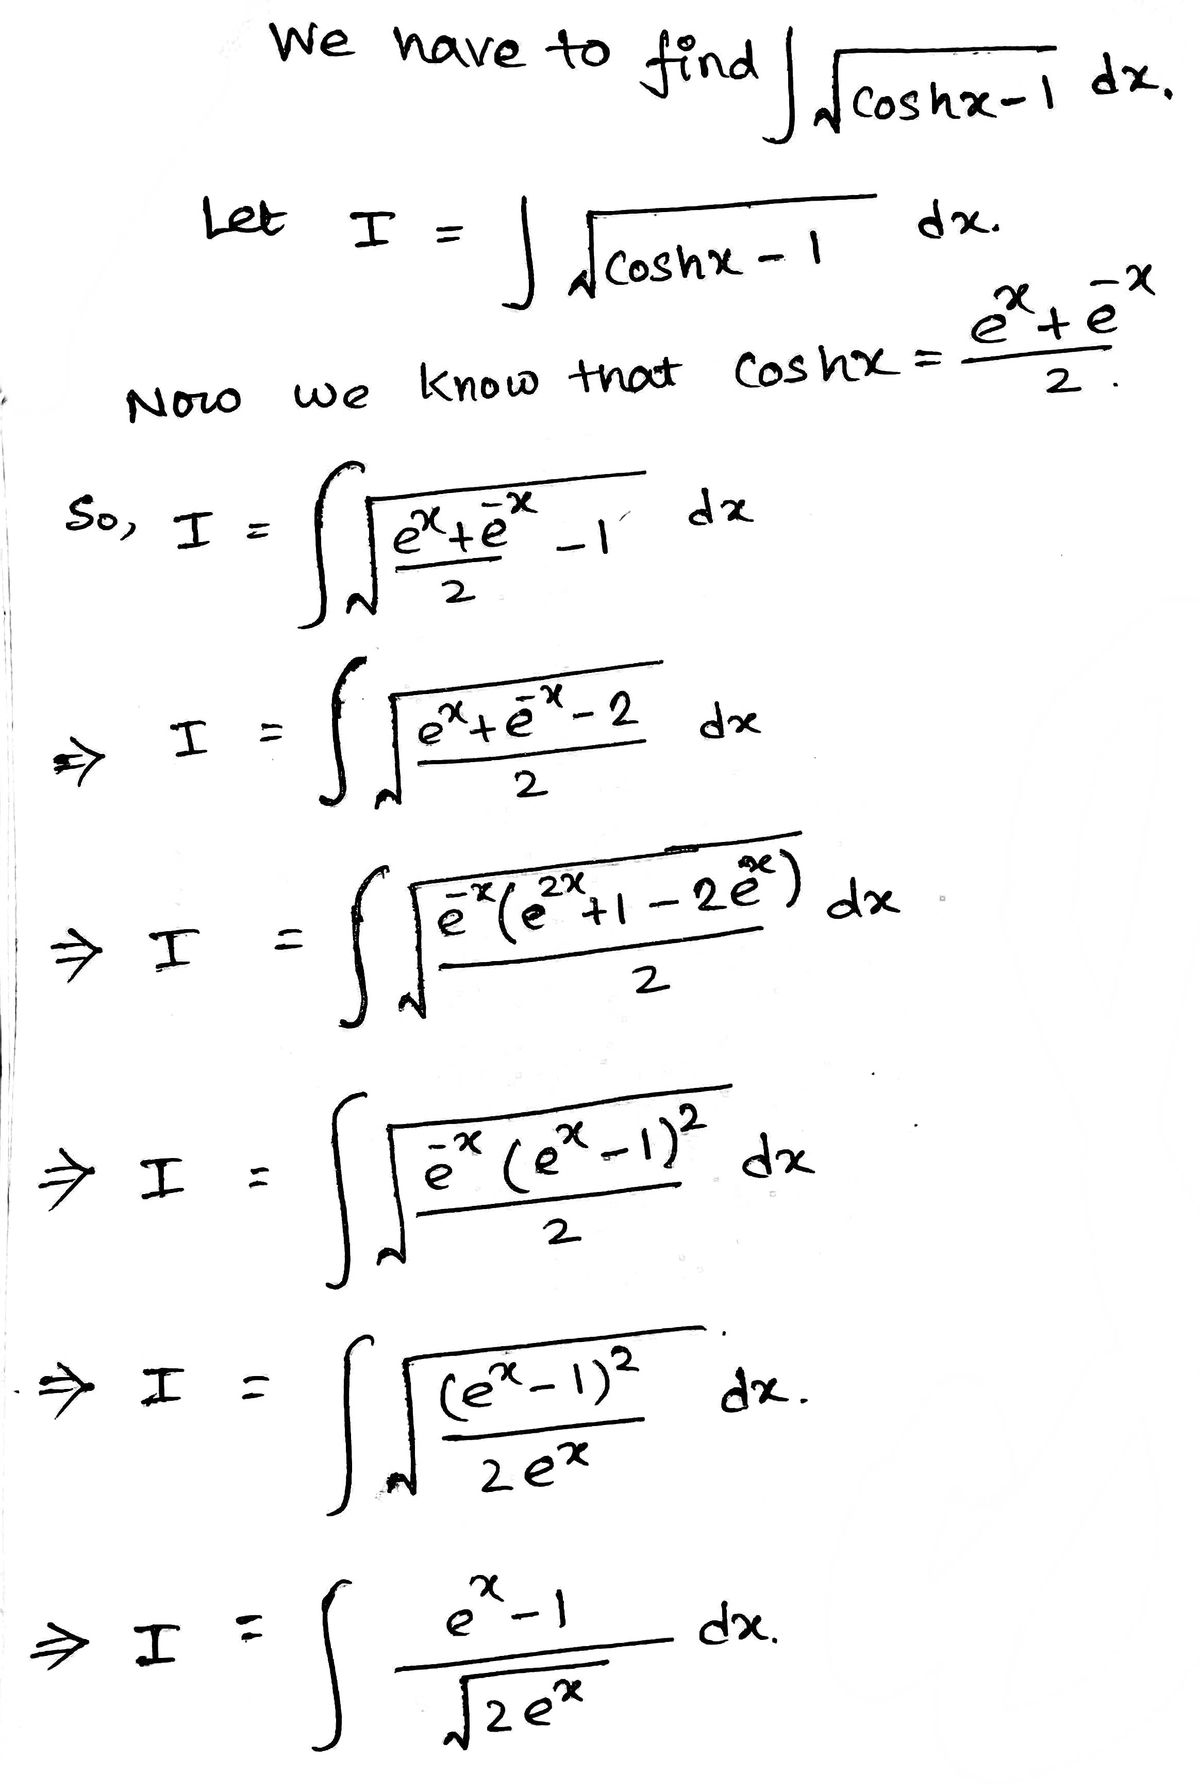 We have to find ∫ √(coshx-1) dx.
Let I = ∫ √(coshx - 1) dx.
Now we know that coshx = (e^x + e^-x)/2.
So, I = ∫ √((e^x + e^-x)/2 - 1) dx
⇒ I = ∫ √((e^x + e^-x - 2)/2) dx
⇒ I = ∫ √((e^-x (e^2x + 1 - 2e^x))/2) dx
⇒ I = ∫ √((e^-x (e^x - 1)^2)/2) dx
⇒ I = ∫ √((e^x - 1)^2/(2e^x)) dx.
⇒ I = ∫ (e^x - 1)/√(2e^x) dx.